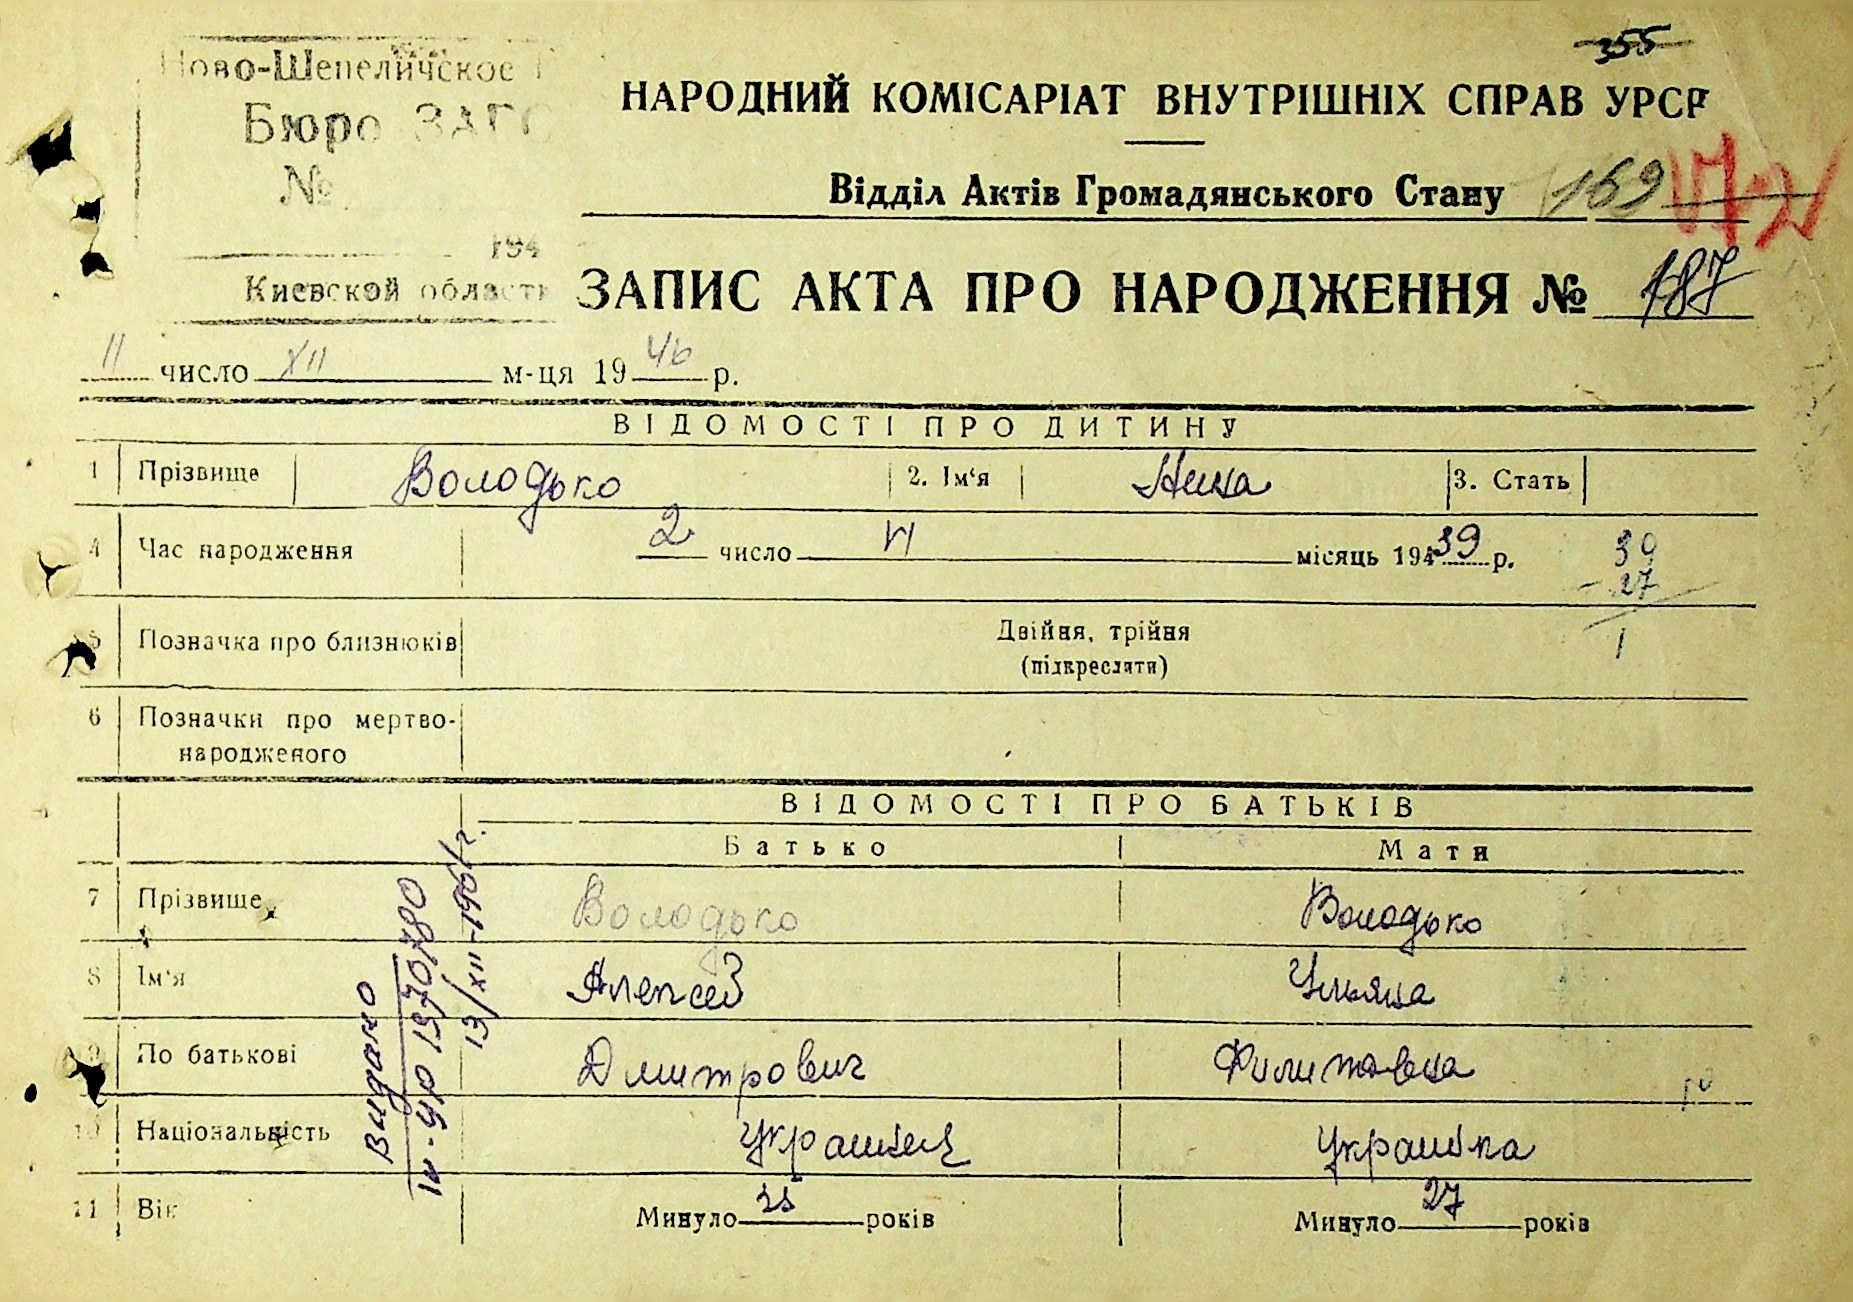 355
Ново-Шепеличское
Бюро ЗАГС
№
194
Киевской области
НАРОДНИЙ КОМІСАРІАТ ВНУТРІШНІХ СПРАВ УРСР
Відділ Актів Громадянського Стану 169 172
ЗАПИС АКТА ПРО НАРОДЖЕННЯ № 187
11 число XII м-ця 1946 р.
ВІДОМОСТІ ПРО ДИТИНУ
1 Прізвище Володько 2. Ім‘я Нина 3. Стать
4 Час народження 2 число VI місяць 194 39 р.
39
- 27
1
5 Позначка про близнюків Двійня, трійня
(підкреслити)
6 Позначки про мертво-
народженого
ВІДОМОСТІ ПРО БАТЬКІВ
Батько Мати
7 Прізвище Володько Володько
8 Ім‘я Алексей Ульяна
9 По батькові Дмитрович Филиповна
10 Національність Украинец Украинка
11 Вік Минуло 25 років Минуло 27 років
видано
13/XII-1961г.